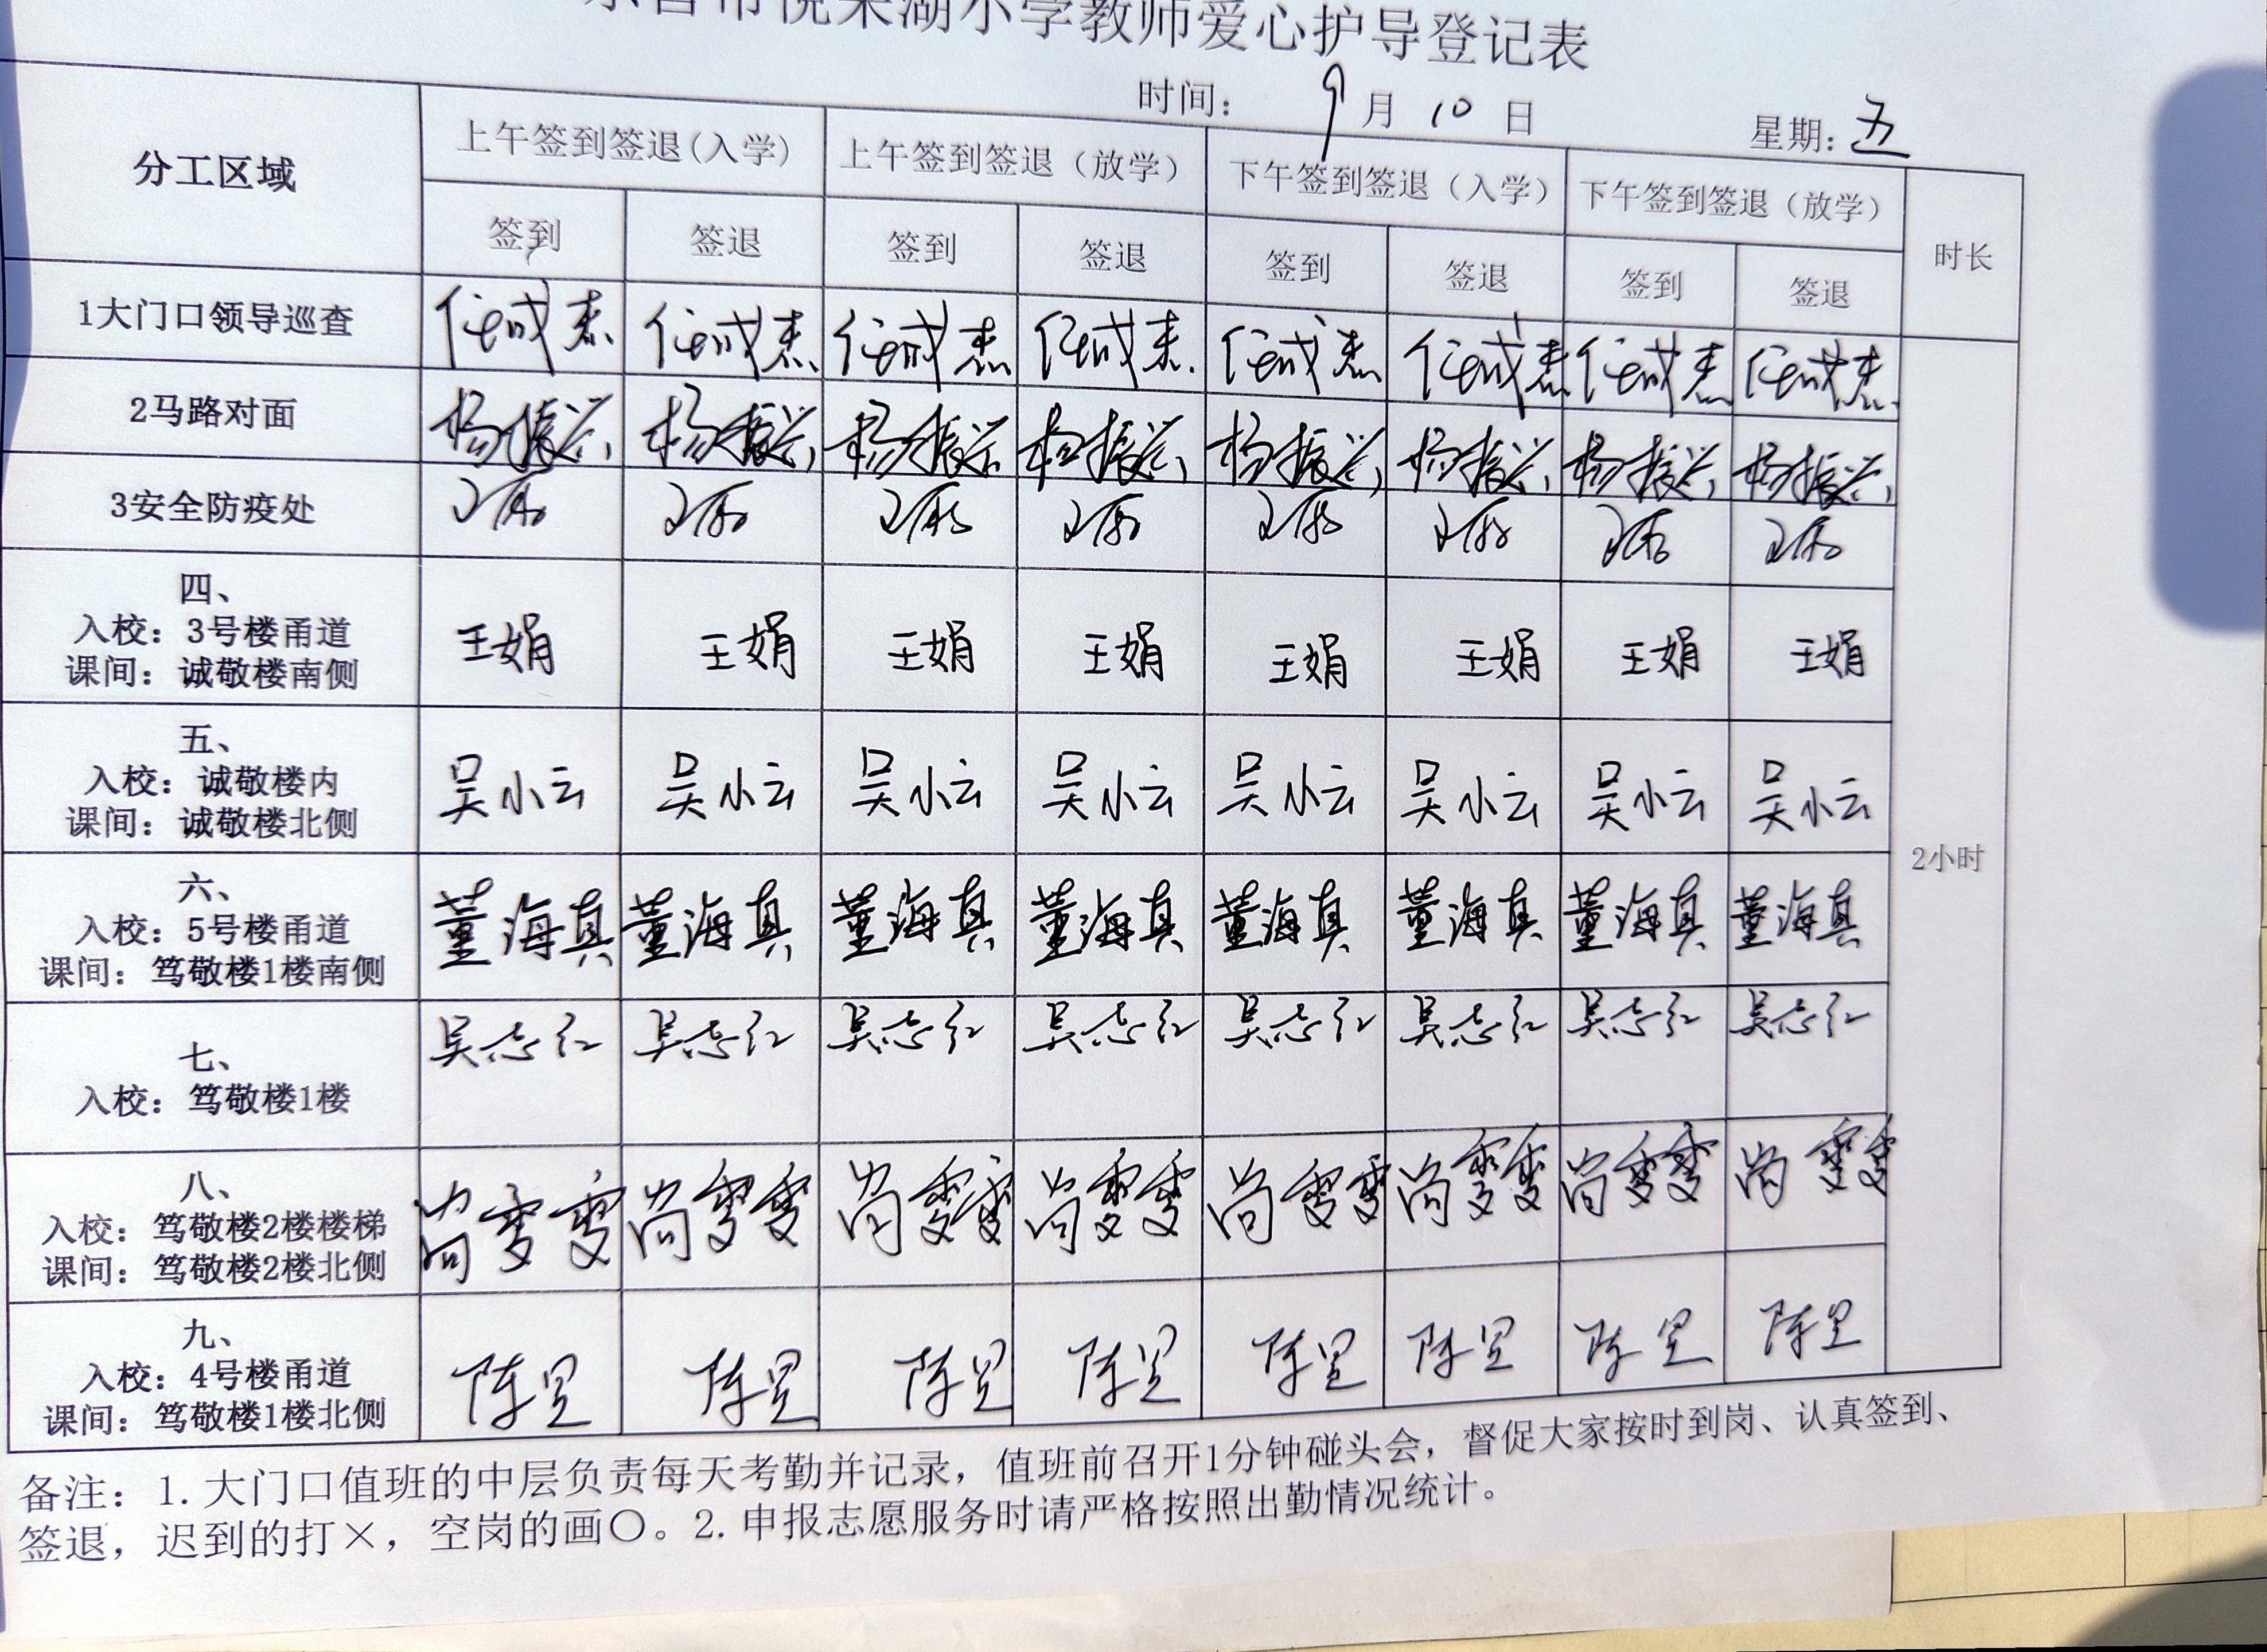 东营市悦来湖小学教师爱心护导登记表
时间： 9月10日 星期：五
分工区域 上午签到签退(入学) 上午签到签退（放学） 下午签到签退（入学） 下午签到签退（放学） 时长
签到 签退 签到 签退 签到 签退 签到 签退
1大门口领导巡查 任成杰 任成杰 任成杰 任成杰 任成杰 任成杰 任成杰 任成杰
2马路对面 杨振兴 杨振兴 杨振兴 杨振兴 杨振兴 杨振兴 杨振兴 杨振兴
3安全防疫处
四、
入校：3号楼甬道 王娟 王娟 王娟 王娟 王娟 王娟 王娟 王娟
课间：诚敬楼南侧
五、
入校：诚敬楼内 吴小云 吴小云 吴小云 吴小云 吴小云 吴小云 吴小云 吴小云
课间：诚敬楼北侧
2小时
六、
入校：5号楼甬道 董海真 董海真 董海真 董海真 董海真 董海真 董海真 董海真
课间：笃敬楼1楼南侧
七、 吴志红 吴志红 吴志红 吴志红 吴志红 吴志红 吴志红 吴志红
入校：笃敬楼1楼
八、
入校：笃敬楼2楼楼梯 尚雯雯 尚雯雯 尚雯雯 尚雯雯 尚雯雯 尚雯雯 尚雯雯 尚雯雯
课间：笃敬楼2楼北侧
九、
入校：4号楼甬道 陈昱 陈昱 陈昱 陈昱 陈昱 陈昱 陈昱 陈昱
课间：笃敬楼1楼北侧
备注：1.大门口值班的中层负责每天考勤并记录，值班前召开1分钟碰头会，督促大家按时到岗、认真签到、
签退，迟到的打×，空岗的画〇。2.申报志愿服务时请严格按照出勤情况统计。